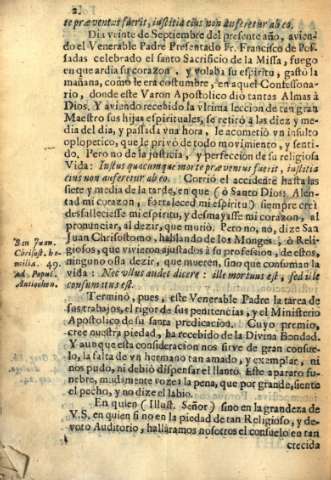 te præventus fuerit, iustitia eius non auferetur ab eo.
Dia veinte de Septiembre del presente año, avien-
do el Venerable Padre Presentado Fr. Francisco de Pos-
sadas celebrado el santo Sacrificio de la Missa, fuego
en que ardia su corazon, y volaba su espiritu, gastò la
mañana, como le era costumbre, en aquel Confessona-
rio, donde este Varon Apostolico diò tantas Almas à
Dios. Y aviendo recebido la vltima leccion de tan gran
Maestro sus hijas espirituales, se retirò à las diez y me-
dia del dia, y passada vna hora, le acometiò vn insulto
oplopetico, que le privò de todo movimiento, y senti-
do. Pero no de la justicia, y perfeccion de su religiosa
Vida: Iustus quacumque morte præventus fuerit, iustitia
eius non auferetur ab eo. Corriò el accidente hasta las
siete y media de la tarde, en que (ò Santo Dios! Alen-
tad mi corazon, fortaleced mi espiritu) siempre creì
desfalleciesse mi espiritu, y desmayasse mi corazon, al
pronunciar, al dezir, que muriò. Pero no, no, dize San
Juan Chrisostomo, hablando de los Monges, ò Reli-
giosos, que vivieron ajustados à su profession, de estos,
ninguno ossa dezir, que mueren, sino que consuman la
vida: Nec vllus audet dicere: ille mortuus est, sed ille
consummatus est.
Ben Juan.
Chrisost. ho-
milia. 49.
ad Popul.
Antiochen.
Terminò, pues, este Venerable Padre la tarea de
sus trabajos, el rigor de sus penitencias, y el Ministerio
Apostolico de su santa predicacion. Cuyo premio,
cree nuestra piedad, ha recebido de la Divina Bondad.
Y aunque esta consideracion nos sirve de gran consue-
lo, la falta de vn hermano tan amado, y exemplar, ni
nos pudo, ni debiò dispensar el llanto. Este aparato fu-
nebre, mudamente vozea la pena, que por grande, siente
el pecho, y no dize el labio.
En quien (Illust. Señor) sino en la grandeza de
V.S. en quien si no en la piedad de tan Religioso, y de-
voto Auditorio, hallaramos nosotros el consuelo en tan
crecida